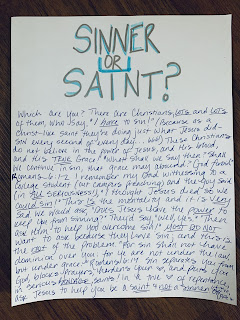 SINNER
OR
SAINT?
Which are you? There are Christians, LOTS and LOTS
of them, who say, "I have to sin!" Because as a
Christ-like saint they're doing just what Jesus did-
Sin every second of every day... not! These Christians
do not believe in the power of Jesus, and His blood,
and His TRUE Grace! "What shall we say then? "Shall
we continue in sin, that grace may abound? God forbid"
Romans 6:1-2 I remember my Dad witnessing to a
college student (our campus preaching) and the guy said
(in ALL seriousness), "I thought Jesus died so we
could sin!" This IS the mentality and it is very
sad. We would ask, "Does Jesus have the power to
keep you from sinning?" They'd say, "Well, yes." "Then
ask Him to help you overcome sin!" Most do not
want to ask because they love sin, and this is
the of the problem. "For sin shall not have
dominion over you: for ye are not under the law,
but under grace" Romans 6:14 Sin separates you from
God, blocks prayers, hardens your and puts you
in serious saints! In a true of repentance
ask Jesus to help you be a saint not a sinner